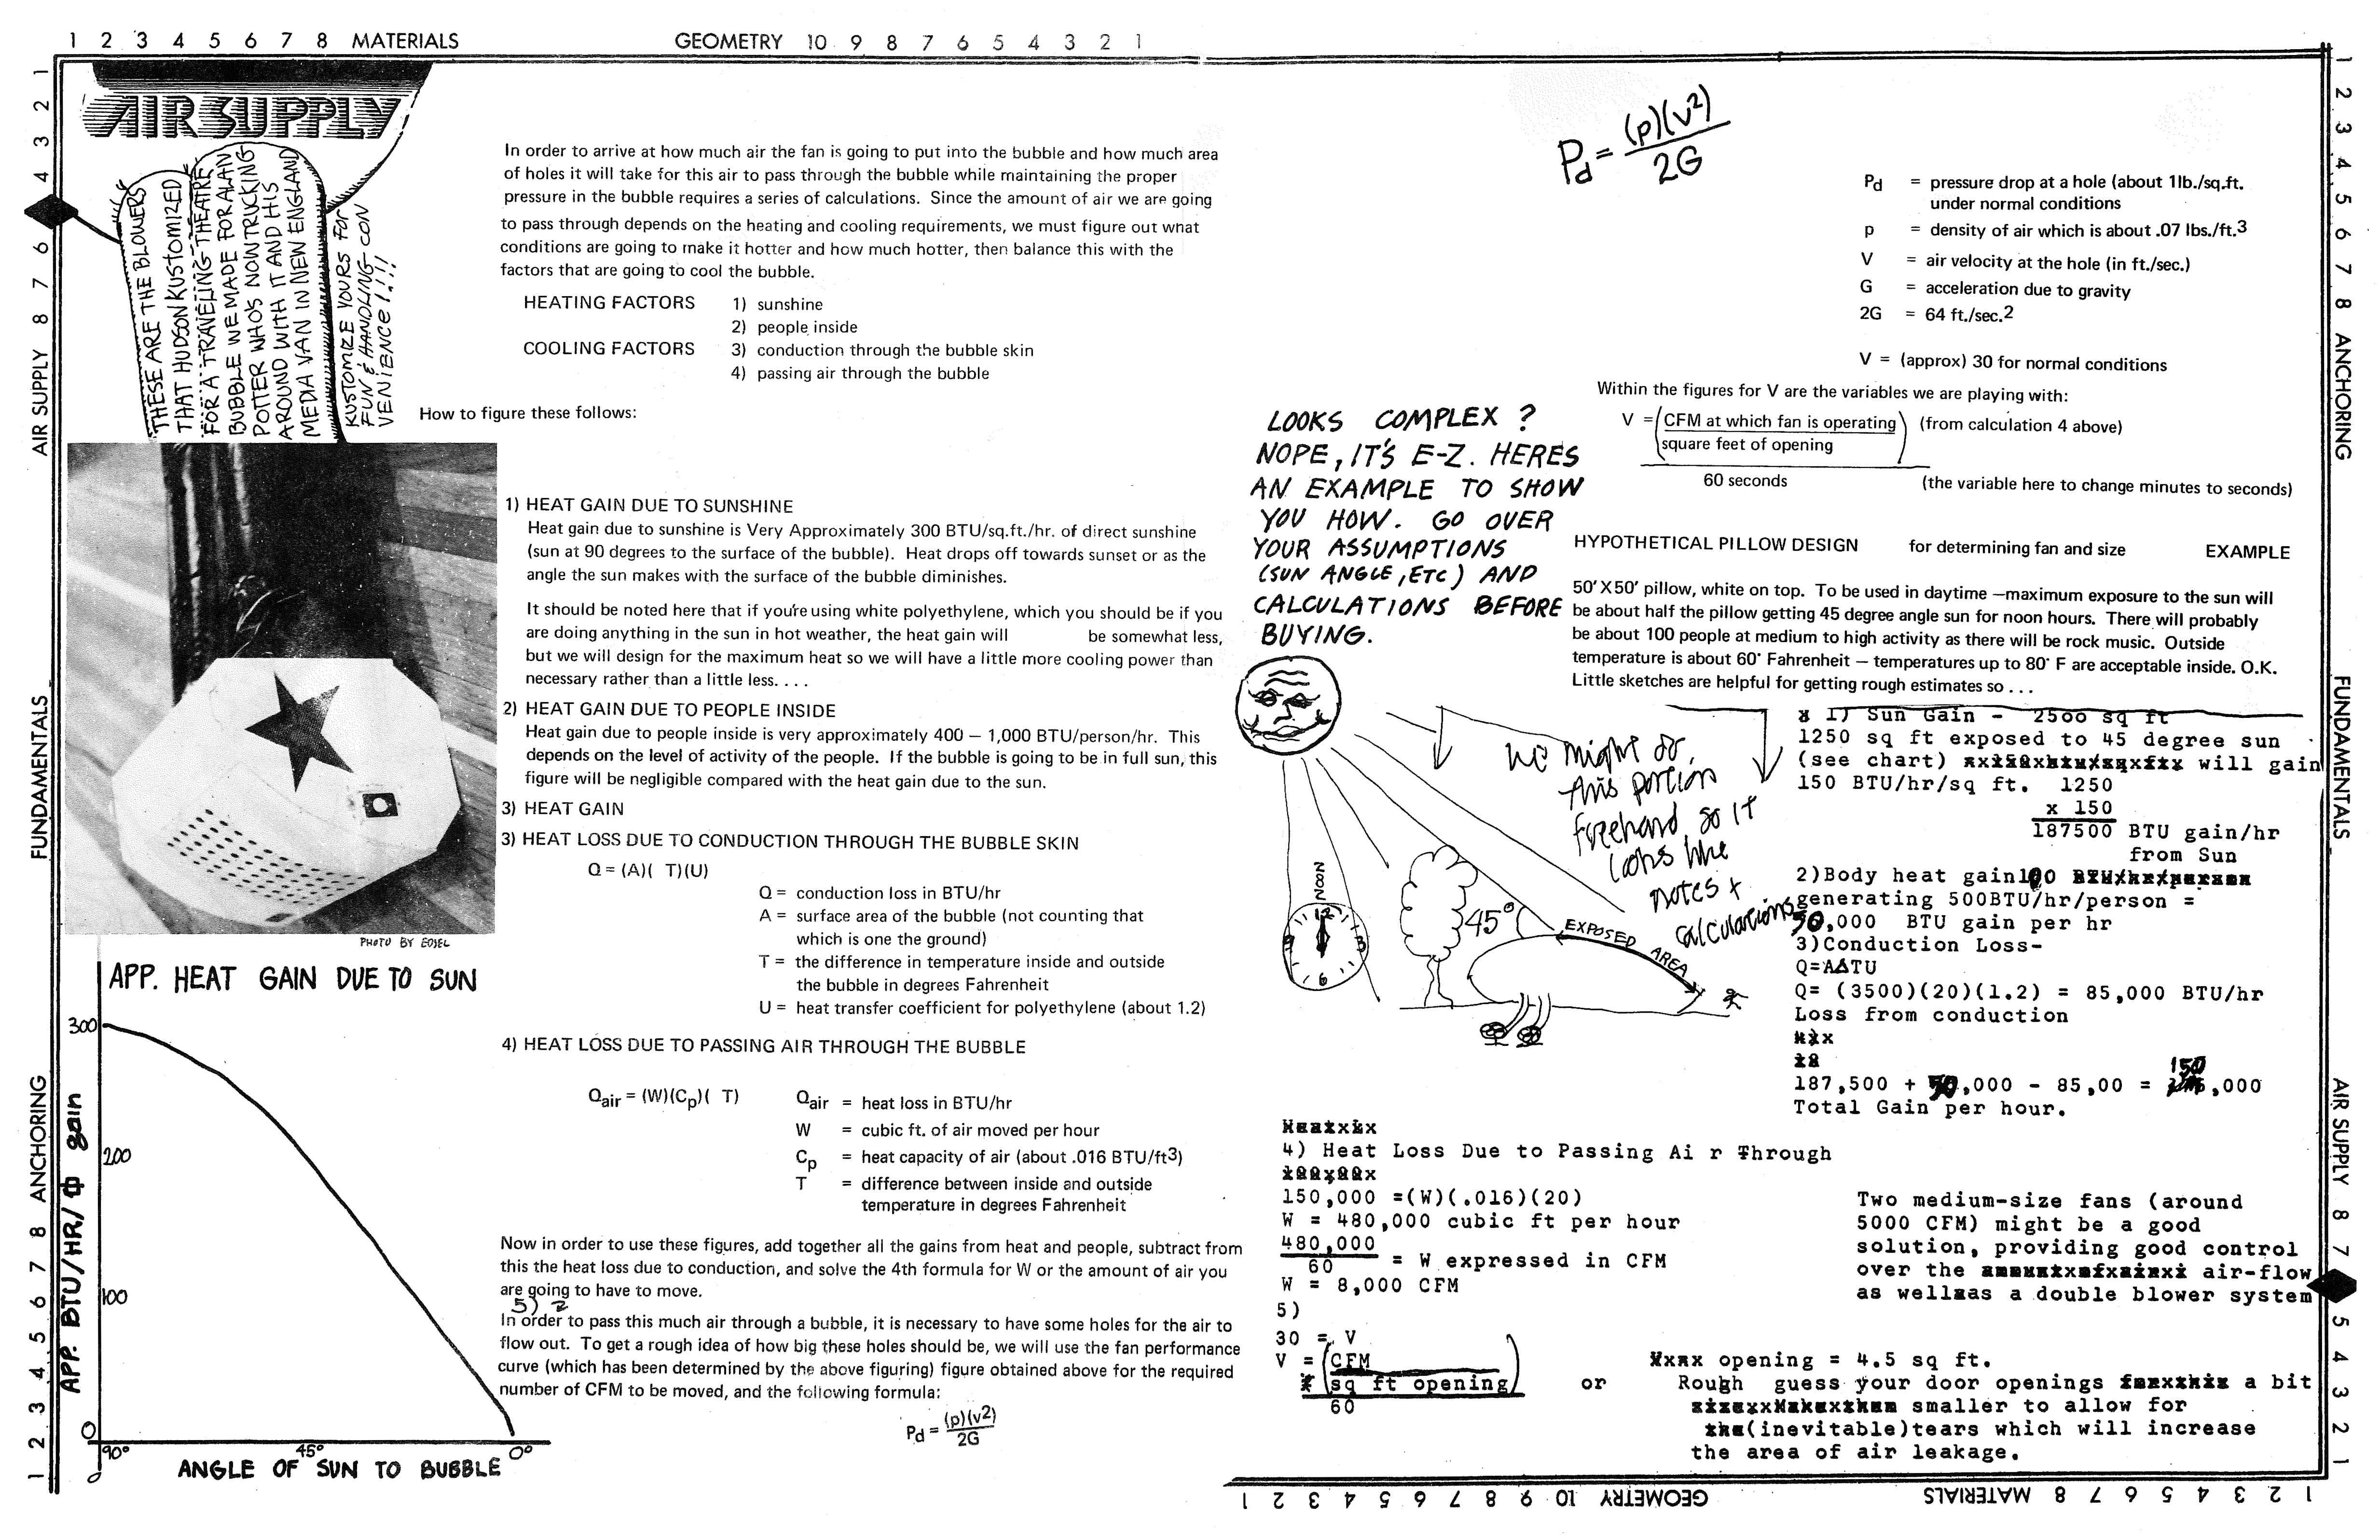 1 2 3 4 5 6 7 8 MATERIALS
GEOMETRY 10 9 8 7 6 5 4 3 2 1
1 2 3 4 5 6 7 8 ANCHORING
FUNDAMENTALS
AIR SUPPLY 8 7 6 5 4 3 2 1
1 2 3 4 5 6 7 8 ANCHORING
FUNDAMENTALS
AIR SUPPLY 8 7 6 5 4 3 2 1
AIR SUPPLY
THESE ARE THE BLOWERS
THAT HUDSON KUSTOMIZED
FOR A TRAVELING THEATRE
BUBBLE WE MADE FOR ALAN
POTTER WHO'S NOW TRUCKING
AROUND WITH IT AND HIS
MEDIA VAN IN NEW ENGLAND
KUSTOMIZE YOURS FOR
FUN & HANDLING CON
VENIENCE!.!!!
In order to arrive at how much air the fan is going to put into the bubble and how much area
of holes it will take for this air to pass through the bubble while maintaining the proper
pressure in the bubble requires a series of calculations. Since the amount of air we are going
to pass through depends on the heating and cooling requirements, we must figure out what
conditions are going to make it hotter and how much hotter, then balance this with the
factors that are going to cool the bubble.
HEATING FACTORS 1) sunshine
2) people inside
COOLING FACTORS 3) conduction through the bubble skin
4) passing air through the bubble
How to figure these follows:
1) HEAT GAIN DUE TO SUNSHINE
Heat gain due to sunshine is Very Approximately 300 BTU/sq.ft./hr. of direct sunshine
(sun at 90 degrees to the surface of the bubble). Heat drops off towards sunset or as the
angle the sun makes with the surface of the bubble diminishes.
It should be noted here that if you're using white polyethylene, which you should be if you
are doing anything in the sun in hot weather, the heat gain will be somewhat less,
but we will design for the maximum heat so we will have a little more cooling power than
necessary rather than a little less. . . .
2) HEAT GAIN DUE TO PEOPLE INSIDE
Heat gain due to people inside is very approximately 400 — 1,000 BTU/person/hr. This
depends on the level of activity of the people. If the bubble is going to be in full sun, this
figure will be negligible compared with the heat gain due to the sun.
3) HEAT GAIN
3) HEAT LOSS DUE TO CONDUCTION THROUGH THE BUBBLE SKIN
Q = (A)( T)(U)
Q = conduction loss in BTU/hr
A = surface area of the bubble (not counting that
which is one the ground)
T = the difference in temperature inside and outside
the bubble in degrees Fahrenheit
U = heat transfer coefficient for polyethylene (about 1.2)
4) HEAT LOSS DUE TO PASSING AIR THROUGH THE BUBBLE
Qair = (W)(Cp)( T)
Qair = heat loss in BTU/hr
W = cubic ft. of air moved per hour
Cp = heat capacity of air (about .016 BTU/ft3)
T = difference between inside and outside
temperature in degrees Fahrenheit
Now in order to use these figures, add together all the gains from heat and people, subtract from
this the heat loss due to conduction, and solve the 4th formula for W or the amount of air you
are going to have to move.
5) 2
In order to pass this much air through a bubble, it is necessary to have some holes for the air to
flow out. To get a rough idea of how big these holes should be, we will use the fan performance
curve (which has been determined by the above figuring) figure obtained above for the required
number of CFM to be moved, and the following formula:
Pd = (p)(v2)
2G
PHOTO BY EOSEL
APP. HEAT GAIN DUE TO SUN
300
200
100
0
APP. BTU/HR/ gain
90° 45° 0°
0
ANGLE OF SUN TO BUBBLE
Pd = (p)(v2)
2G
Pd = pressure drop at a hole (about 1lb./sq.ft.
under normal conditions
p = density of air which is about .07 lbs./ft.3
V = air velocity at the hole (in ft./sec.)
G = acceleration due to gravity
2G = 64 ft./sec.2
V = (approx) 30 for normal conditions
Within the figures for V are the variables we are playing with:
V = (CFM at which fan is operating) (from calculation 4 above)
square feet of opening
60 seconds (the variable here to change minutes to seconds)
LOOKS COMPLEX ?
NOPE, IT'S E-Z. HERES
AN EXAMPLE TO SHOW
YOU HOW. GO OVER
YOUR ASSUMPTIONS
(SUN ANGLE, ETC) AND
CALCULATIONS BEFORE
BUYING.
HYPOTHETICAL PILLOW DESIGN for determining fan and size EXAMPLE
50' X 50' pillow, white on top. To be used in daytime —maximum exposure to the sun will
be about half the pillow getting 45 degree angle sun for noon hours. There will probably
be about 100 people at medium to high activity as there will be rock music. Outside
temperature is about 60° Fahrenheit — temperatures up to 80° F are acceptable inside. O.K.
Little sketches are helpful for getting rough estimates so . . .
We might do
this portion
freehand, so it
looks like
notes +
calculations
NOON
12
3
6
9
45°
EXPOSED AREA
1) Sun Gain - 2500 sq ft
1250 sq ft exposed to 45 degree sun
(see chart) will gain
150 BTU/hr/sq ft. 1250
x 150
187500 BTU gain/hr
from Sun
2)Body heat gain 100
generating 500BTU/hr/person =
50,000 BTU gain per hr
3)Conduction Loss-
Q=AΔTU
Q= (3500)(20)(1.2) = 85,000 BTU/hr
Loss from conduction
187,500 + 50,000 - 85,00 = 150,000
Total Gain per hour.
4) Heat Loss Due to Passing Ai r Through
150,000 =(W)(.016)(20)
W = 480,000 cubic ft per hour
480,000
60 = W expressed in CFM
W = 8,000 CFM
5)
30 = V
V = (CFM
sq ft opening)
60
Two medium-size fans (around
5000 CFM) might be a good
solution, providing good control
over the air-flow
as well as a double blower system
opening = 4.5 sq ft.
or Rough guess your door openings a bit
smaller to allow for
(inevitable)tears which will increase
the area of air leakage.
1 2 3 4 5 6 7 8 9 10 GEOMETRY
MATERIALS 8 7 6 5 4 3 2 1